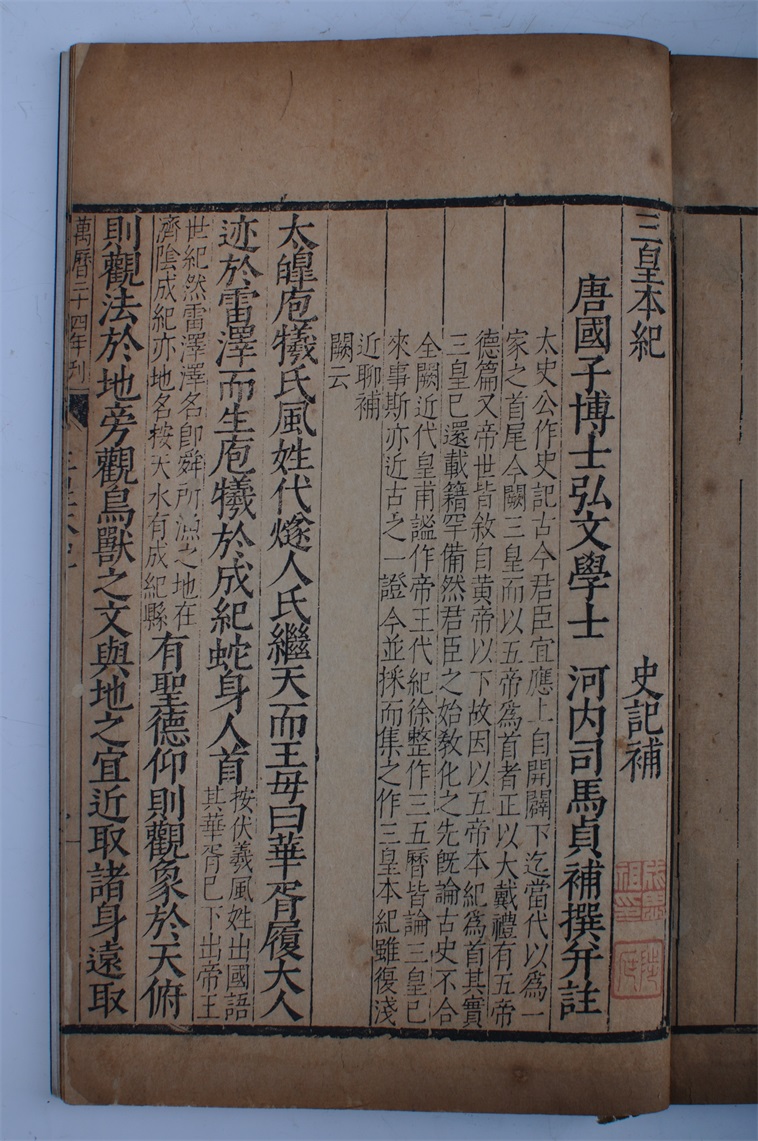 三皇本紀 史記補
唐國子博士弘文學士 河内司馬貞補撰并註
太史公作史記古今君臣宜應上自開闢下迄當代以爲一
家之首尾今闕三皇而以五帝爲首者正以大戴禮有五帝
德篇又帝世皆敘自黃帝以下故因以五帝本紀爲首其實
三皇已還載籍罕備然君臣之始敎化之先旣論古史不合
全闕近代皇甫謐作帝王代紀徐整作三五曆皆論三皇已
來事斯亦近古之一證今並採而集之作三皇本紀雖復淺
近聊補
闕云
太皥庖犧氏風姓代燧人氏繼天而王母曰華胥履大人
迹於雷澤而生庖犧於成紀蛇身人首
按伏羲風姓出國語
其華胥已下出帝王
世紀然雷澤澤名卽舜所漁之地在
濟陰成紀亦地名按天水有成紀縣
有聖德仰則觀象於天俯
則觀法於地旁觀鳥獸之文與地之宜近取諸身遠取
萬曆二十四年刊